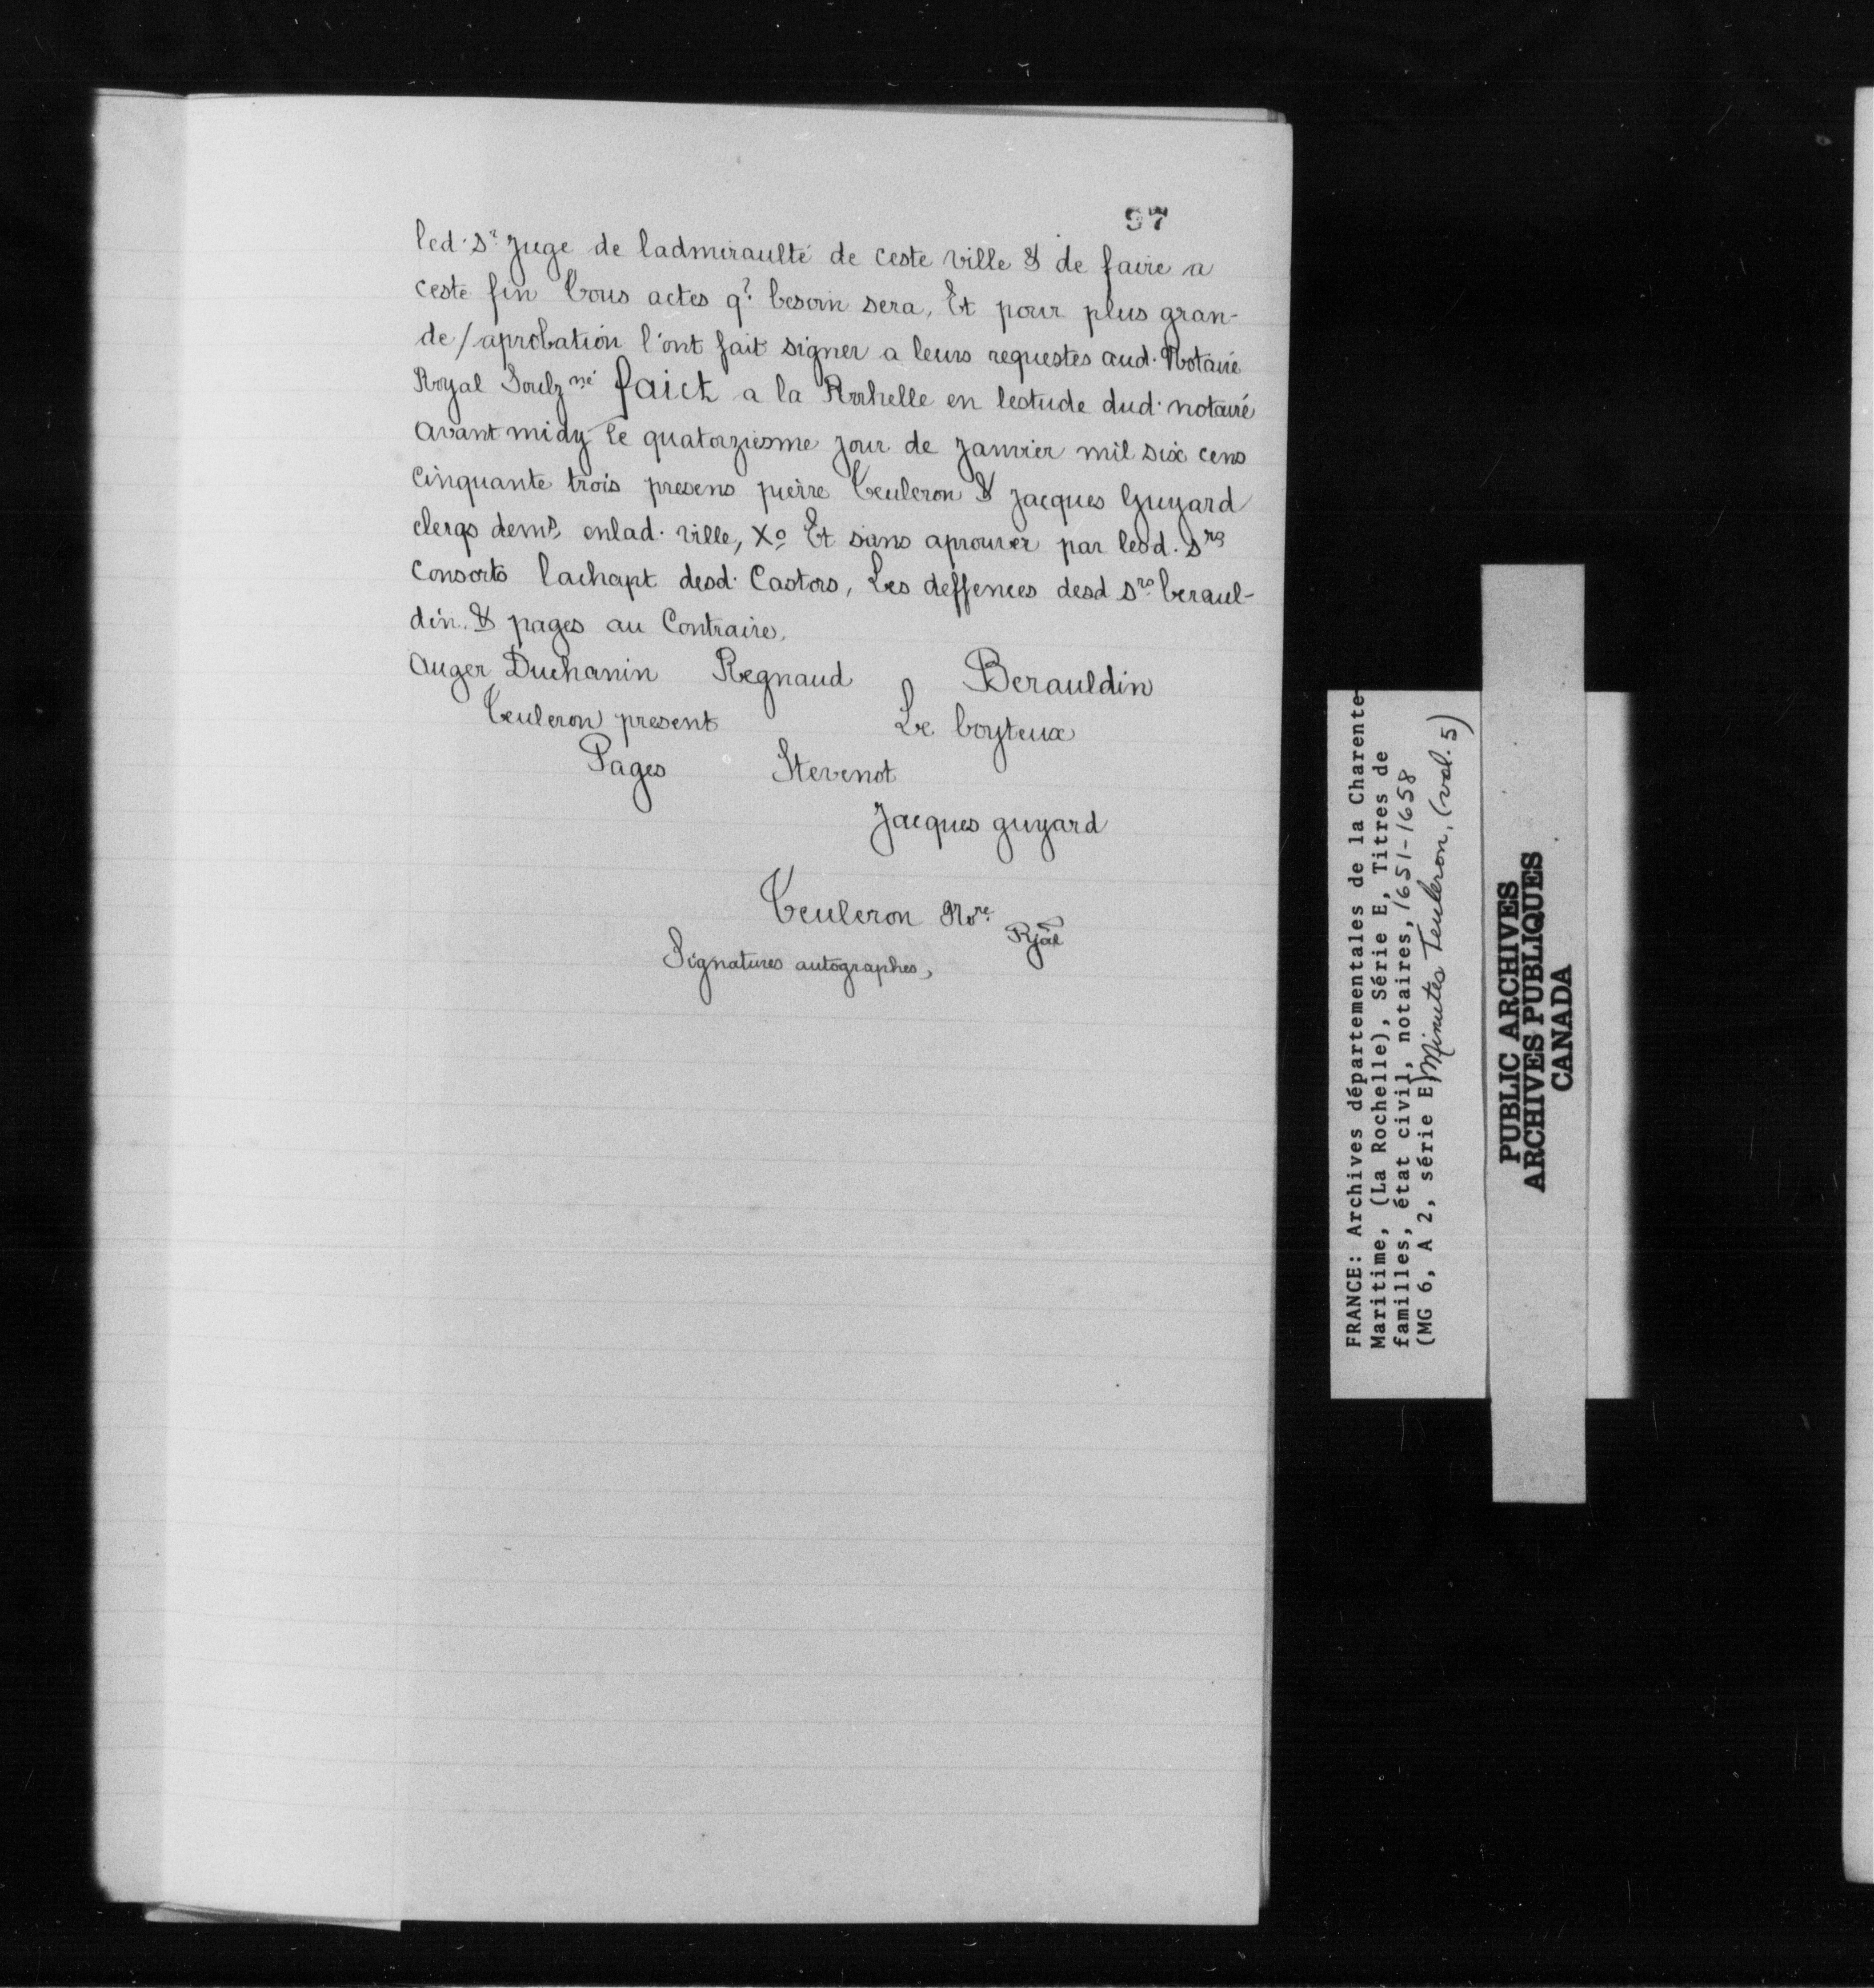 97
led. Sr. Juge de ladmiraulté de ceste ville & de faire a
ceste fin tous actes q? besoin sera, Et pour plus gran-
de/aprobation l'ont fait signer a leurs requestes aud. Notaire
Royal Soulz né faict a la Rochelle en lestude dud. notaire
avant midy le quatorziesme jour de Janvier mil six cens
cinquante trois presens pierre Teuleron & Jacques Guyard
clerqs demt. enlad. ville, Xo Et sans aprouver par lesd. Srs
Consorts lachapt desd. Castors, Les deffences desd Srs. beraul-
din. & pages au Contraire.
Auger Duchanin Regnaud Berauldin
Teuleron present Le boyteux
Pages Stevenot
Jacques guyard
Teuleron Nore. Rjal
Signatures autographes,
FRANCE: Archives départementales de la Charente-
Maritime, (La Rochelle), Série E, Titres de
familles, état civil, notaires, 1651-1658
(MG 6, A 2, série E) Minutes Teuleron, (vol. 5)
PUBLIC ARCHIVES
ARCHIVES PUBLIQUES
CANADA